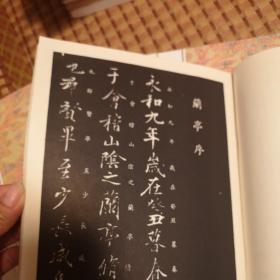 蘭亭序
永和九年歲在癸丑暮春
永和九年歲在癸丑暮春
于會稽山陰之蘭亭脩
于會稽山陰之蘭亭
也羣賢畢至少長咸集
也群賢畢至少長咸